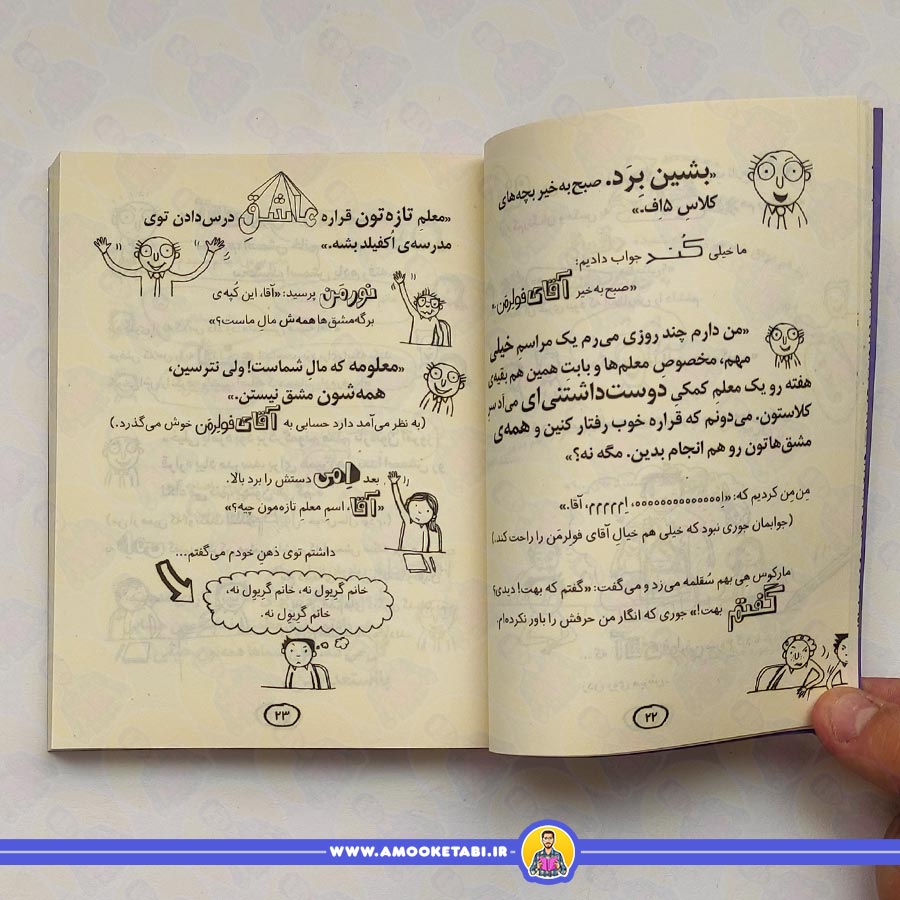 «بشین بِرَد. صبح‌به‌خیر بچه‌های
کلاس ۱۵ف.»
ما خیلی کُند جواب دادیم:
«صبح‌به‌خیر آقای فولِرمَن.»
«من دارم چند روزی می‌رم یک مراسم خیلی
مهم، مخصوص معلم‌ها و بابت همین هم بقیه‌ی
هفته رو یک معلمِ کمکیِ دوست‌داشتنی‌ای می‌آد سرِ
کلاستون. می‌دونم که قراره خوب رفتار کنین و همه‌ی
مشق‌هاتون رو هم انجام بدین. مگه نه؟»
مِن‌مِن کردیم که: «اِه‌ه‌ه‌ه‌ه‌ه‌ه‌ه‌ه‌ه‌ه‌ه‌ه، اِم‌م‌م‌م‌م، آقا.»
(جوابمان جوری نبود که خیلی هم خیالِ آقای فولِرمَن را راحت کند.)
مارکوس هِی بهم سُقلمه می‌زد و می‌گفت: «گفتم که بهت! دیدی؟
گفتم بهت!» جوری که انگار من حرفش را باور نکرده‌ام.
۲۲
«معلمِ تازه‌تون قراره عاشقِ درس‌دادن توی
مدرسه‌ی اُکفیلد بشه.»
نورمَن پرسید: «آقا، این کُپه‌ی
برگه‌مشق‌ها همه‌ش مالِ ماست؟»
«معلومه که مالِ شماست! ولی نترسین،
همه‌شون مشق نیستن.»
(به نظر می‌آمد دارد حسابی به آقای فولِرمَن خوش می‌گذرد.)
بعد اِمی دستش را برد بالا.
«آقا، اسم معلمِ تازه‌مون چیه؟»
داشتم توی ذهنِ خودم می‌گفتم...
خانم گریوِل نه، خانم گریوِل نه،
خانم گریوِل نه.
۲۳
WWW.AMOOKETABI.IR